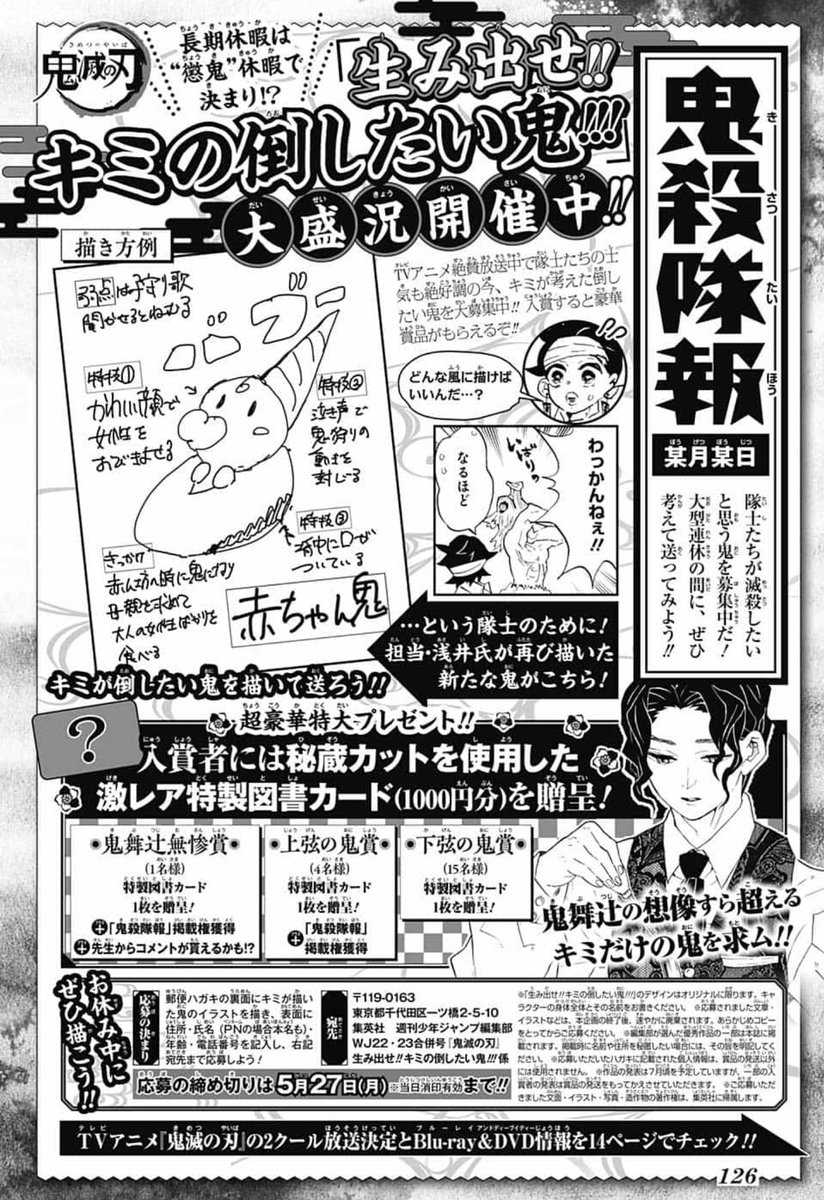 鬼殺隊報
某月某日
隊士たちが滅殺したい
と思う鬼を募集中だ!
大型連休の間に、ぜひ
考えて送ってみよう!!
鬼滅の刃
長期休暇は
“懲鬼”休暇で
決まり!?
「生み出せ!!
キミの倒したい鬼!!!」
大盛況開催中!!
TVアニメ絶賛放送中で隊士たちの士
気も絶好調の今、キミが考えた倒し
たい鬼を大募集中!! 入賞すると豪華
賞品がもらえるぞ!!
どんな風に描けば
いいんだ…?
わっかんねぇ!!
いばり
なるほど
描き方例
弱点は子守り歌
聞かせるとねむる
特技①
かわいい顔で
女性を
おびきよせる
特技②
泣き声で
鬼狩りの
動きを
封じる
特技③
背中に口が
ついている
きっかけ
赤ん坊の時に鬼になり
母親を求めて
大人の女性ばかりを
食べる
赤ちゃん鬼
…という隊士のために!
担当・浅井氏が再び描いた
新たな鬼がこちら!
キミが倒したい鬼を描いて送ろう!!
超豪華特大プレゼント!!
?
入賞者には秘蔵カットを使用した
激レア特製図書カード(1000円分)を贈呈!
鬼舞辻無惨賞
(1名様)
特製図書カード
1枚を贈呈!
+「鬼殺隊報」掲載権獲得
+先生からコメントが貰えるかも!?
上弦の鬼賞
(4名様)
特製図書カード
1枚を贈呈!
+「鬼殺隊報」
掲載権獲得
下弦の鬼賞
(15名様)
特製図書カード
1枚を贈呈!
鬼舞辻の想像すら超える
キミだけの鬼を求ム!!
お休み中に
ぜひ描こう!!
応募の決まり
郵便ハガキの裏面にキミが描い
た鬼のイラストを描き、表面に
住所・氏名(PNの場合本名も)・
年齢・電話番号を記入し、右記
宛先まで応募しよう!
宛先
〒119-0163
東京都千代田区一ツ橋2-5-10
集英社 週刊少年ジャンプ編集部
WJ22・23合併号『鬼滅の刃』
生み出せ!!キミの倒したい鬼!!!係
応募の締め切りは5月27日(月)※当日消印有効まで!!
※「生み出せ!!キミの倒したい鬼!!!」のデザインはオリジナルに限ります。キャ
ラクターの身体全体とその名前をお書きください。※応募されました文章・
イラストなどは、本企画の終了後、速やかに廃棄されます。あらかじめコピー
をとってからご応募ください。※編集部が選んだ優秀作品の一部は本誌に掲
載されます。掲載時に名前や住所を秘匿したい場合には、その旨を明記してく
ださい。※応募いただいたハガキに記載された個人情報は、賞品の発送以外
には使用されません。※作品の発表は7月頃を予定していますが、一部の入
賞者の発表は賞品の発送をもってかえさせていただきます。※ご応募いただ
きました文面・イラスト・写真・造作物の著作権は、集英社に帰属します。
TVアニメ『鬼滅の刃』の2クール放送決定とBlu-ray&DVD情報を14ページでチェック!!
126